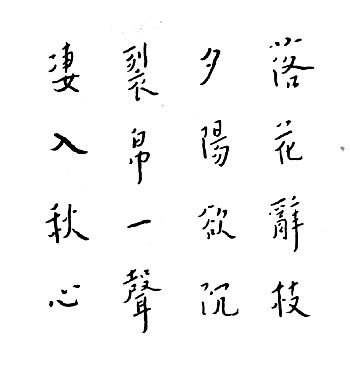 落花辭枝
夕陽欲沉
裂帛一聲
凄入秋心